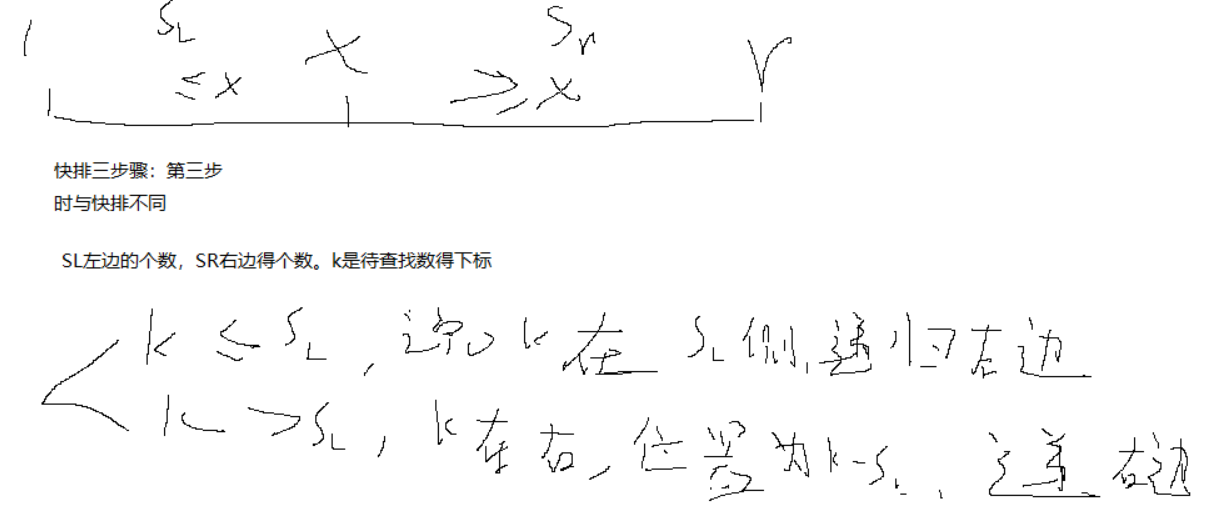 l SL x Sr r
≤x ≥x
快排三步骤：第三步
时与快排不同
SL左边的个数，SR右边得个数。k是待查找数得下标
k ≤ SL，说明k在SL侧，递归左边
k > SL，k在右，位置为k-SL，递归右边